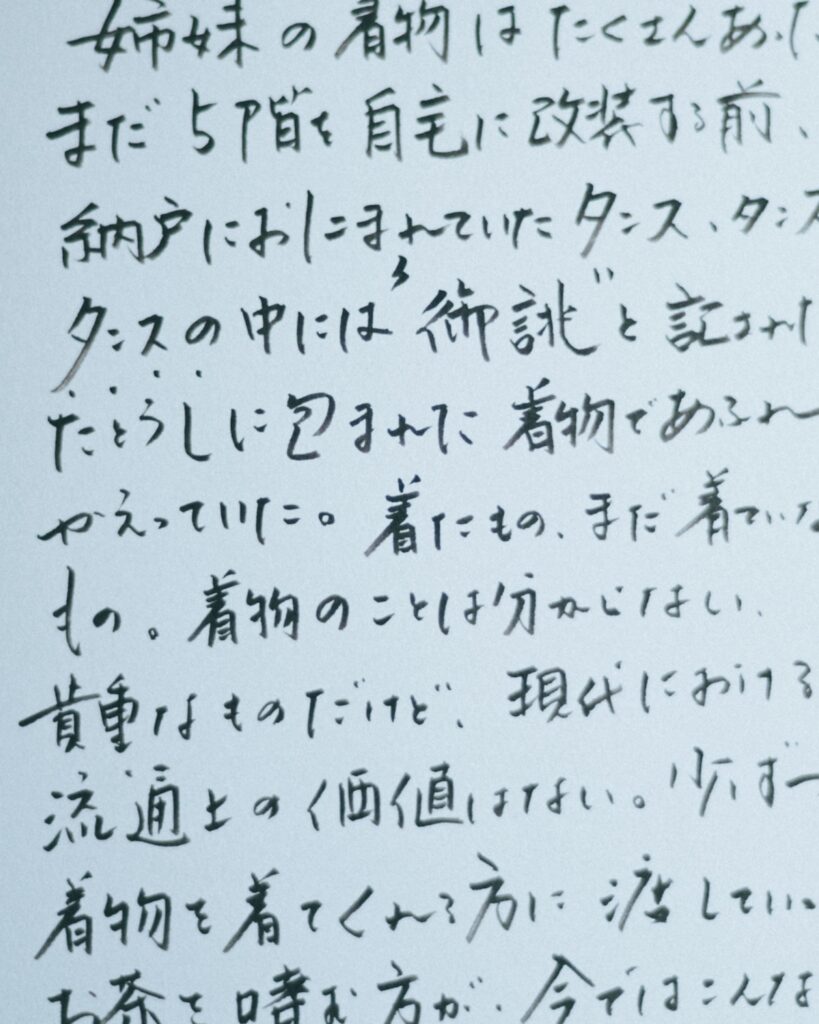 姉妹の着物はたくさんあった
まだ5階を自宅に改装する前、
納戸におしこまれていたタンス、タンス
タンスの中には“御誂”と記された
たとうしに包まれた着物であふれ
かえっていた。着たもの、まだ着ていな
もの。着物のことは分からない、
貴重なものだけど、現代における
流通上の価値はない。少しずつ
着物を着てくれる方に渡してい
お茶を嗜む方が、今ではこんな